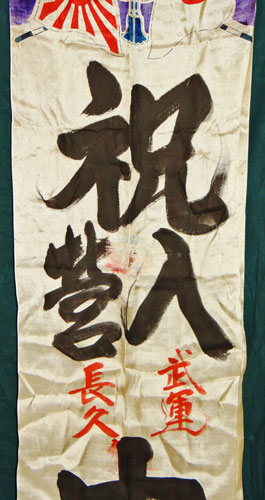 祝入營
武運
長久